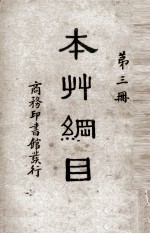 第三冊
本艸綱目
商務印書館發行